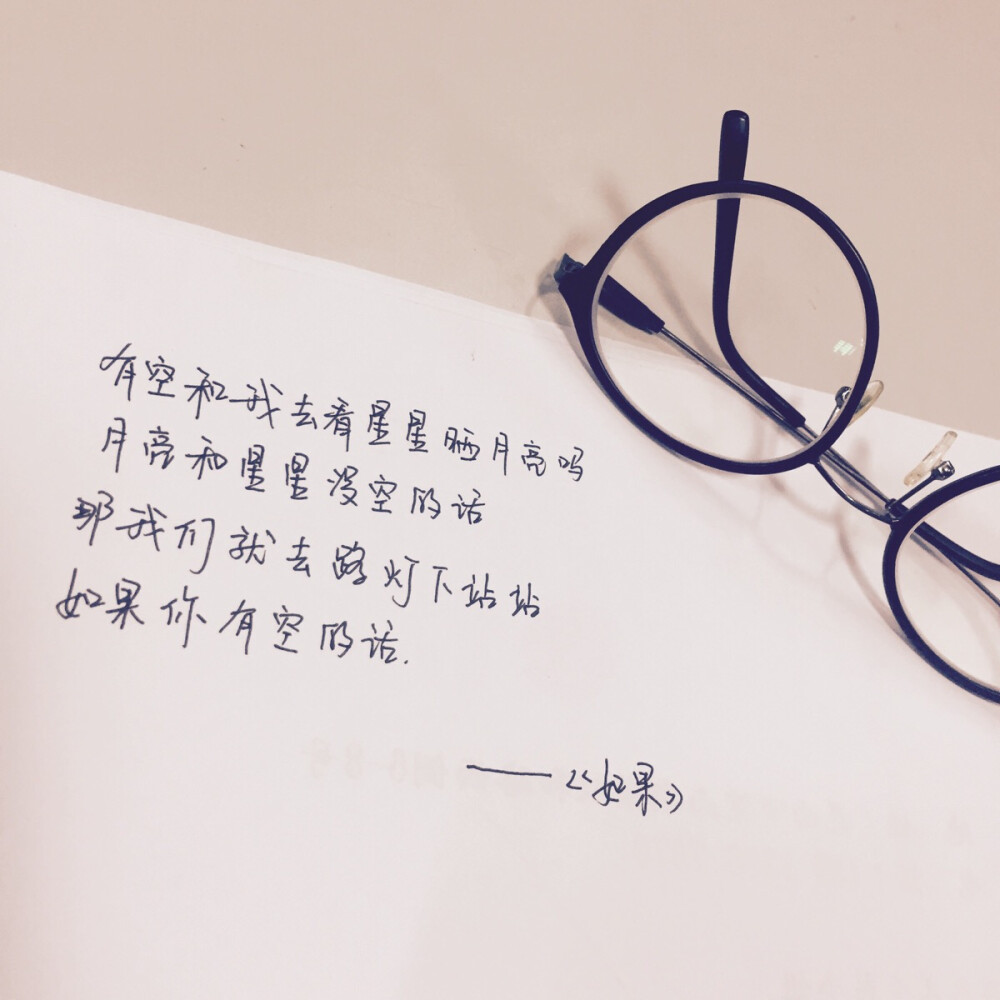 有空和我去看星星晒月亮吗
月亮和星星没空的话
那我们就去路灯下站站
如果你有空的话.
——《如果》